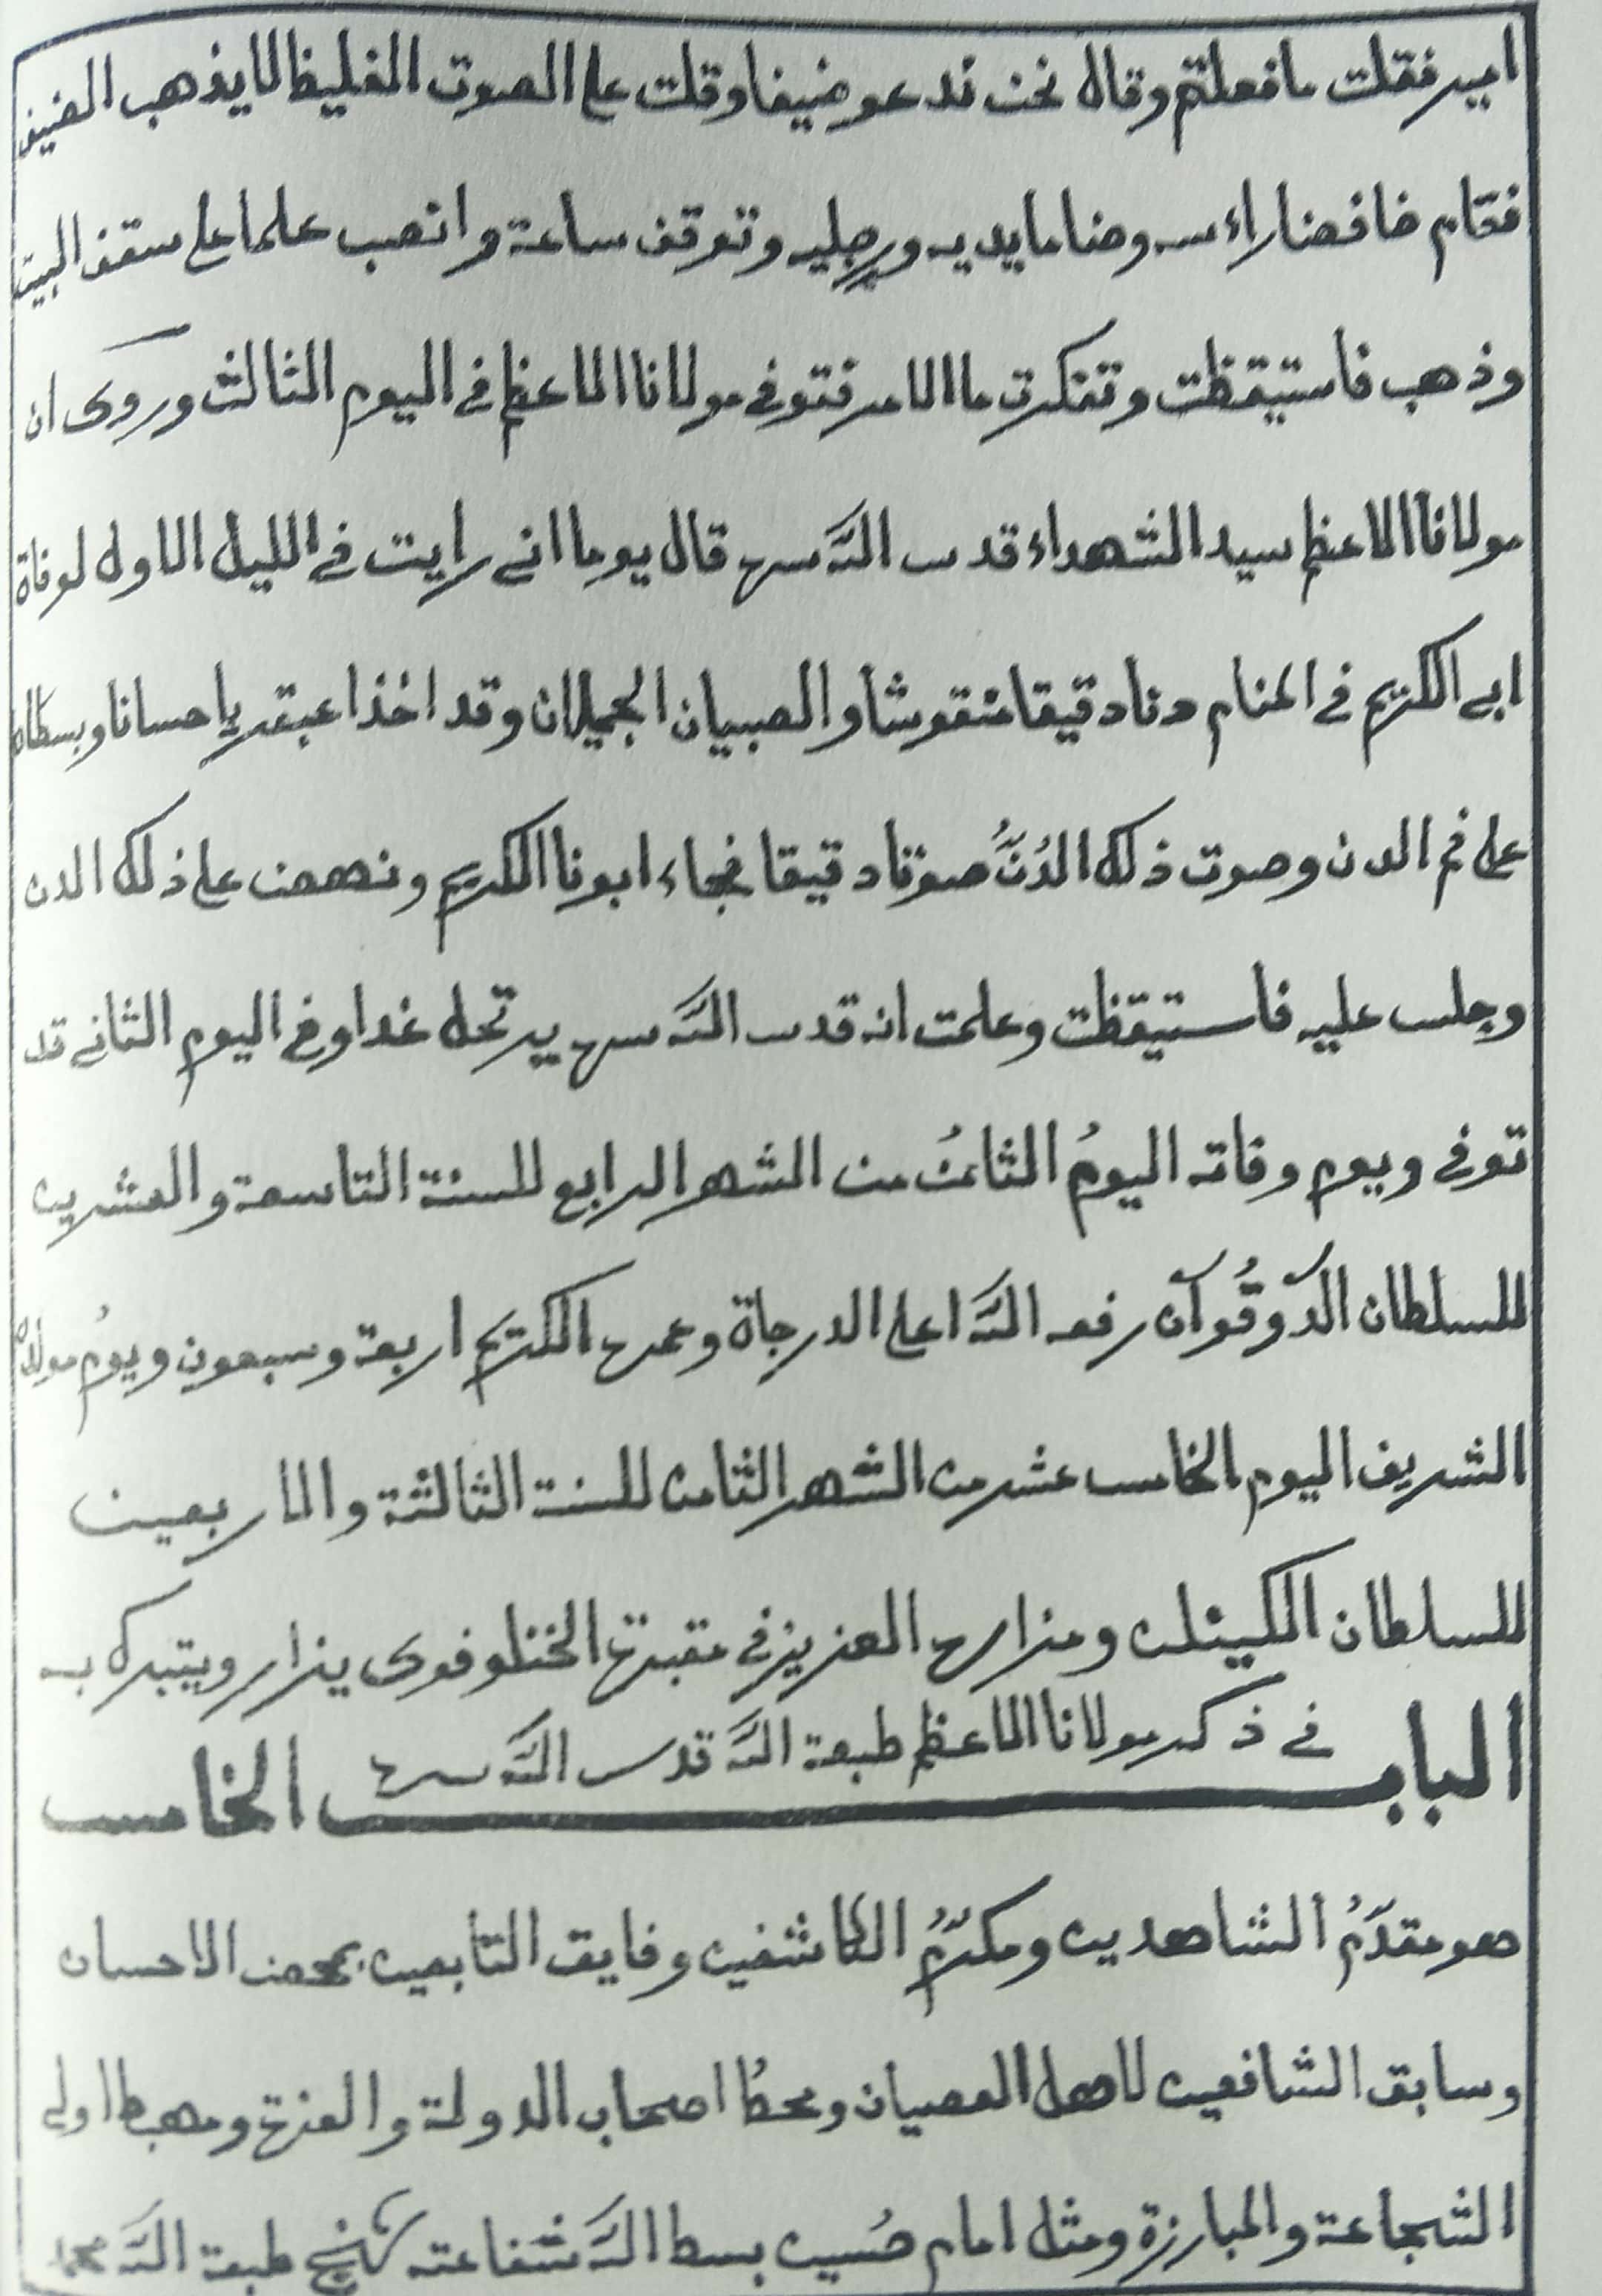 امير فقلت ما فعلتم وقال نحن ندعو ضيفا وقلت على الصوت الغليظ لا يذهب الضيف
فقام خافضا راءسه وضاما يديه ورجليه وتوقف ساعة وانصب علما على سقف البيت
وذهب فاستيقظت وتفكرت ما الامر فتوفى مولانا الاعظم فى اليوم الثالث وروى ان
مولانا الاعظم سيد الشهداء قدس الله سره قال يوما انى رايت فى الليل الاول لوفاة
ابى الكريم فى المنام دنا دقيقا منقوشا والصبيان الجميلان وقد اخذا عبقريا حسانا وبسطاه
على فم الدن وصوت ذلك الدُنَّ صوتا دقيقا فجاء ابونا الكريم ونهض على ذلك الدن
وجلس عليه فاستيقظت وعلمت انه قدس الله سره يرتحل غدا وفى اليوم الثانى قد
توفى ويوم وفاته اليومُ الثامنُ من الشهر الرابع للسنة التاسعة والعشرين
للسلطان الدَوقُوآن رفعه الله اعلى الدرجاة وعمره الكريم اربعة وسبعون ويومُ مولده
الشريف اليوم الخامس عشر من الشهر الثامن للسنة الثالثة والاربعين
للسلطان الكيئلن ومزاره العزيز فى مقبرة الخنلوفوى يزار ويتبرك به
الباب الخامس فى ذكر مولانا الاعظم طبعة الله قدس الله سره
هو مقدّمُ الشاهدين ومكرّمُ الكاشفين وفايق التابعين بمحض الاحسان
وسابق الشافعين لاهل العصيان ومحطُ اصحاب الدولة والعزة ومهبط اولى
الشجاعة والمبارزة ومثل امام حُسين بسط الله شفاعته طبعة الله محمد